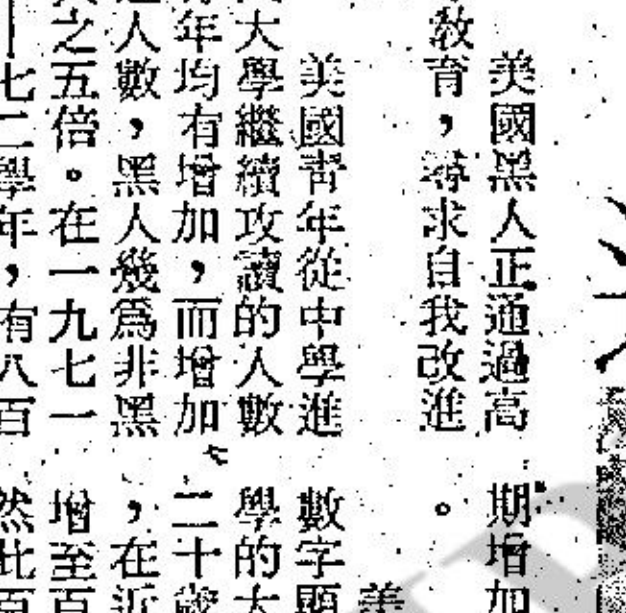 美國黑人正通過高
教育,尋求自我改進
美國青年從中學進
大學繼續攻讀的人數
年均有增加,而增加
人數,黑人幾爲非黑
之五倍。在一九七一
—七二學年,有八百
期增加
。
美
數字顯
學的大
二十歲
,在近
增至百
然此百